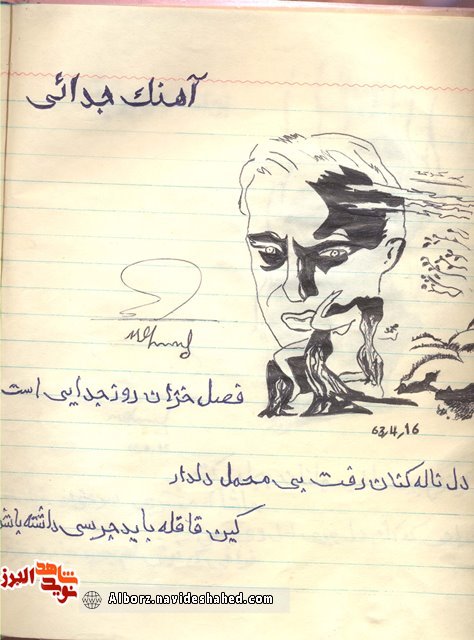 آهنگ جدائی
فصل خزان روز جدایی است
63,4,16
دل ناله کنان رفت پی محمل دلدار
کین قافله باید جرسی داشته باشد
شاهد
نوید
البرز
Alborz.navideshahed.com